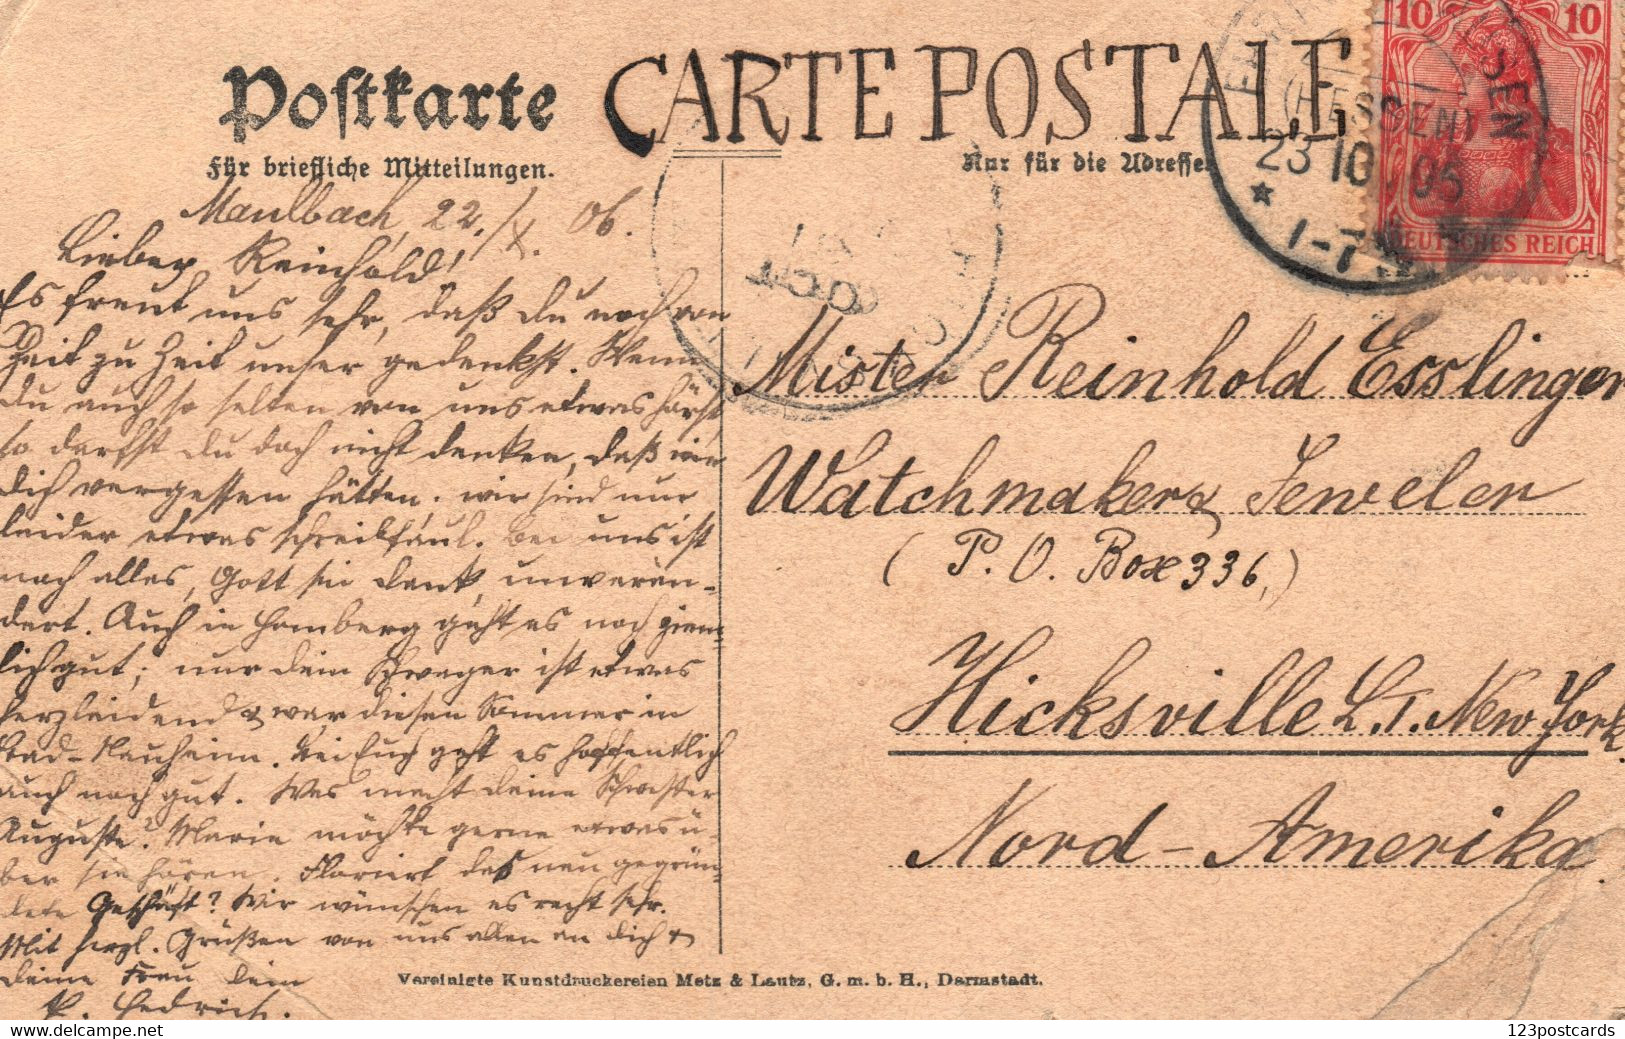 Postkarte
CARTE POSTALE
Für briefliche Mitteilungen.
Nur für die Adresse
10 10
DEUTSCHES REICH
(HESSEN)
23 10 06
1-7
Maulbach, 22./X. 06.
Lieber Reinhold!
Es freut uns sehr, daß du noch von
Zeit zu Zeit unser gedenkst. Wenn
du auch so selten von uns etwas hörst,
so darfst du doch nicht denken, daß wir
dich vergessen hätten; wir sind nur
leider etwas schreibfaul. Bei uns ist
noch alles, Gott sei Dank, unverän-
dert. Auch in Homberg geht es noch ziem-
lich gut; nur dein Schwager ist etwas
herzleidend & war diesen Sommer in
Bad-Nauheim. Bei Euch geht es hoffentlich
auch noch gut. Was macht deine Schwester
Auguste? Marie möchte gerne etwas ü-
ber sie hören. Floriert das neu gegrün-
dete Geschäft? Wir wünschen es recht sehr.
Mit herzl. Grüßen von uns allen an dich &
deine Frau dein
K. Hedrich.
Mister Reinhold Esslinger
Watchmaker & Jeweler
(P. O. Box 336,)
Hicksville L. I. New York
Nord-Amerika.
Vereinigte Kunstdruckereien Metz & Lautz, G. m. b. H., Darmstadt.
123postcards